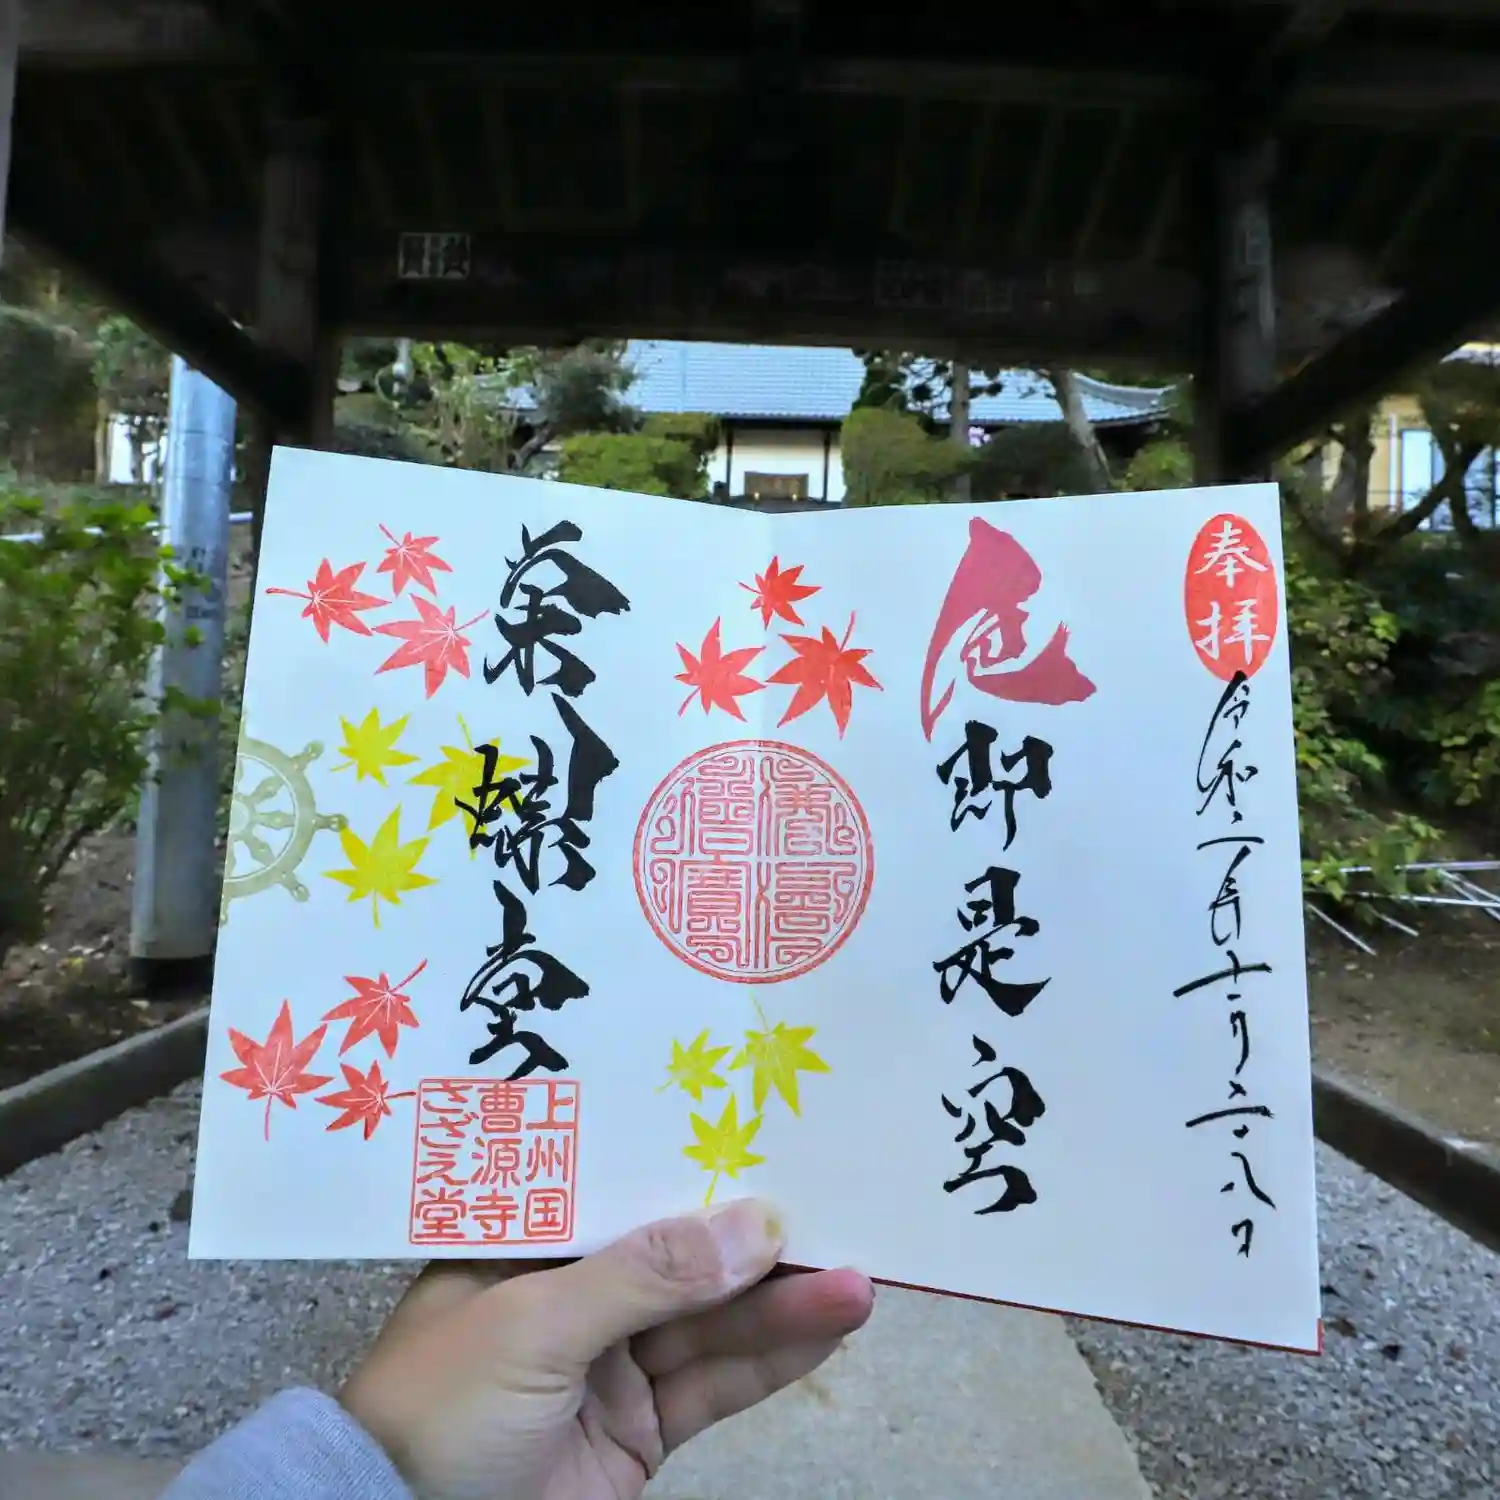 奉拝
令和二年十一月二十八日
色即是空
佛法僧寶
栄螺堂
上州国
曹源寺
さざえ堂